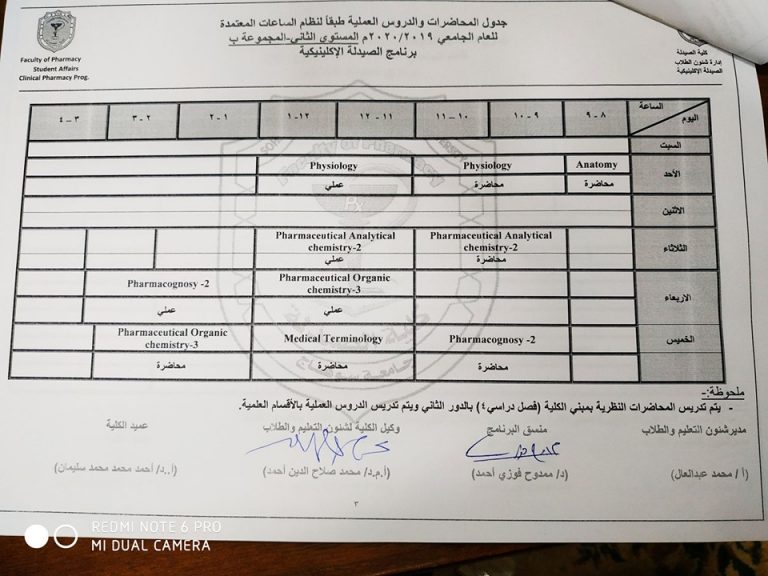 جدول المحاضرات والدروس العملية طبقاً لنظام الساعات المعتمدة
للعام الجامعي ٢٠٢٠/٢٠١٩م المستوى الثاني-المجموعة ب
برنامج الصيدلة الإكلينيكية
كلية الصيدلة
إدارة شئون الطلاب
الصيدلة الإكلينيكية
Faculty of Pharmacy
Student Affairs
Clinical Pharmacy Prog.
الساعة
اليوم
٨ - ٩
٩ - ١٠
١٠ - ١١
١١ - ١٢
١٢-١
١ - ٢
٢ - ٣
٣ - ٤
السبت
الأحد
Anatomy
Physiology
Physiology
محاضرة
محاضرة
عملي
الاثنين
الثلاثاء
Pharmaceutical Analytical
chemistry-2
محاضرة
Pharmaceutical Analytical
chemistry-2
عملي
الاربعاء
Pharmaceutical Organic
chemistry-3
عملي
Pharmacognosy -2
عملي
الخميس
Pharmacognosy -2
محاضرة
Medical Terminology
محاضرة
Pharmaceutical Organic
chemistry-3
محاضرة
ملحوظة:-
- يتم تدريس المحاضرات النظرية بمبني الكلية (فصل دراسي٤) بالدور الثاني ويتم تدريس الدروس العملية بالأقسام العلمية.
مديرشنون التعليم والطلاب
منسق البرنامج
وكيل الكلية لشنون التعليم والطلاب
عميد الكلية
(أ / محمد عبدالعال)
(د/ ممدوح فوزي أحمد)
(أ.م.د/ محمد صلاح الدين أحمد)
(أ.د/ أحمد محمد محمد سليمان)
٣
REDMI NOTE 6 PRO
MI DUAL CAMERA